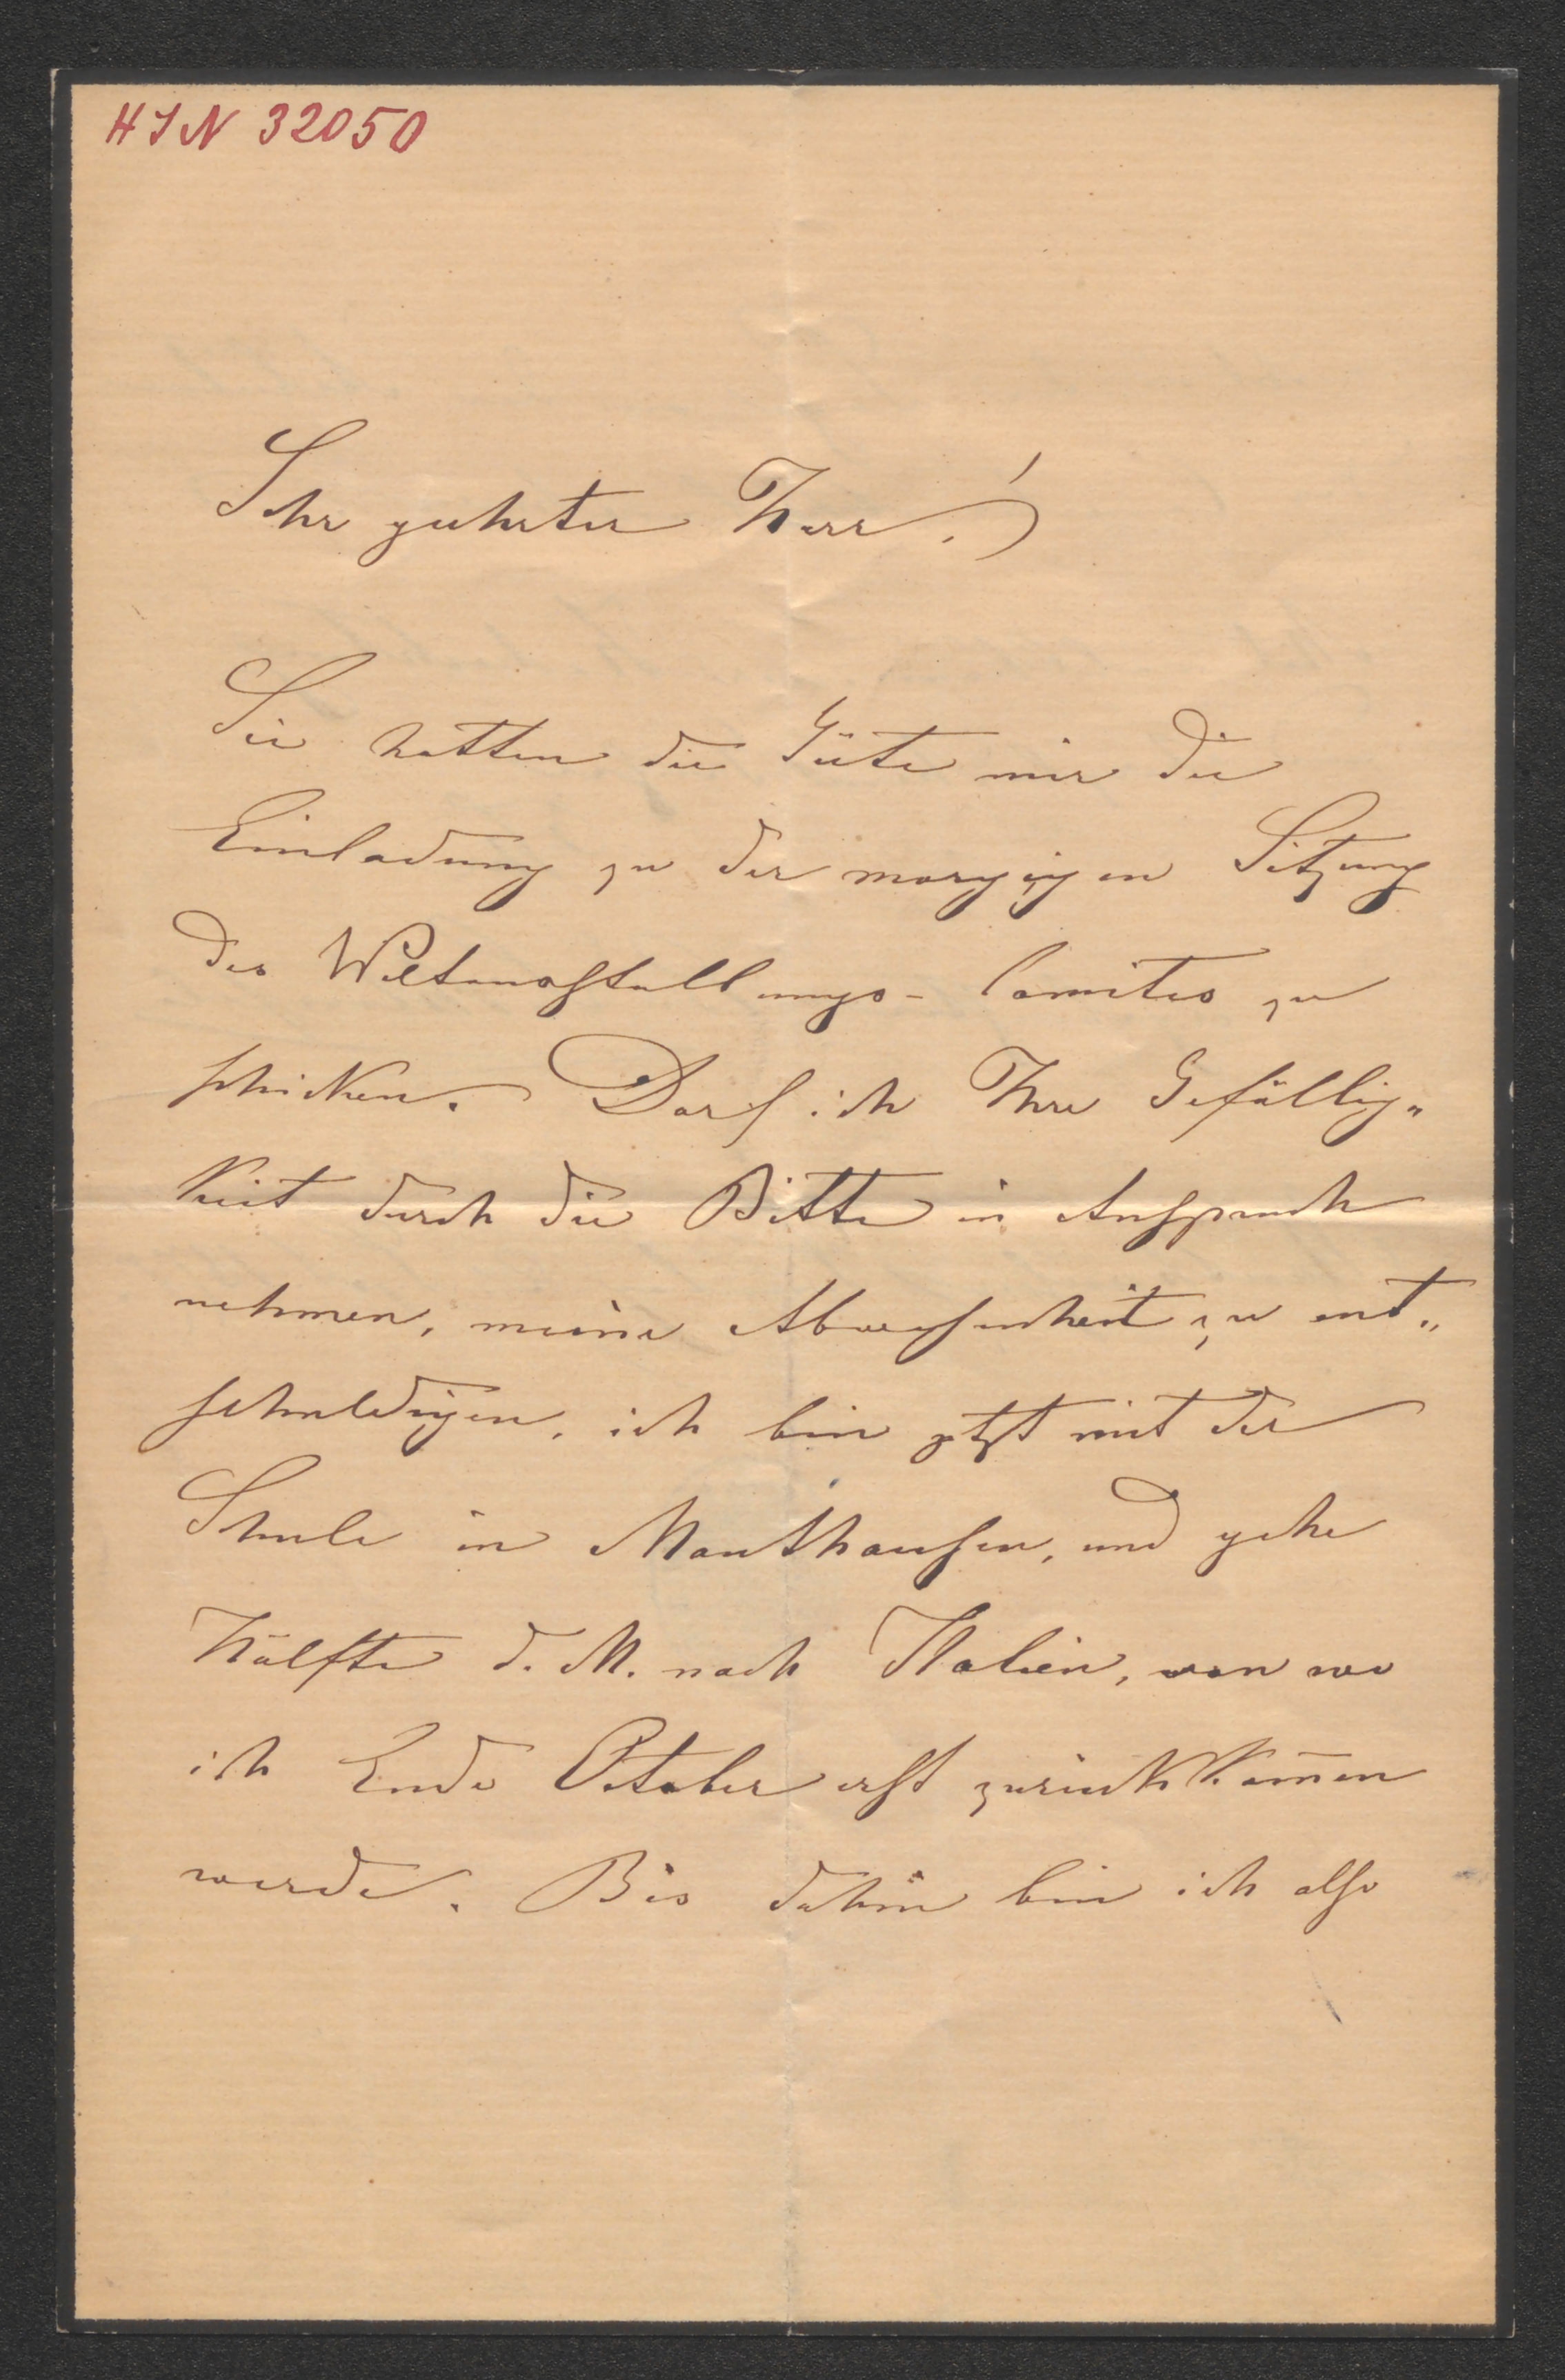 HIN 32050
Sehr geehrter Herr!
Sie hatten die Güte mir die
Einladung zu der morgigen Sitzung
des Weltausstellungs-Comites zu
schicken. Darf ich Ihre Gefällig„
keit durch die Bitte in Anspruch
nehmen, meine Abwesenheit zu ent„
schuldigen, ich bin jetzt mit der
Schule in Mauthausen, und gehe
Hälfte d. M. nach Italien, von wo
ich Ende October erst zurück kom̅en
werde. Bis dahin bin ich also